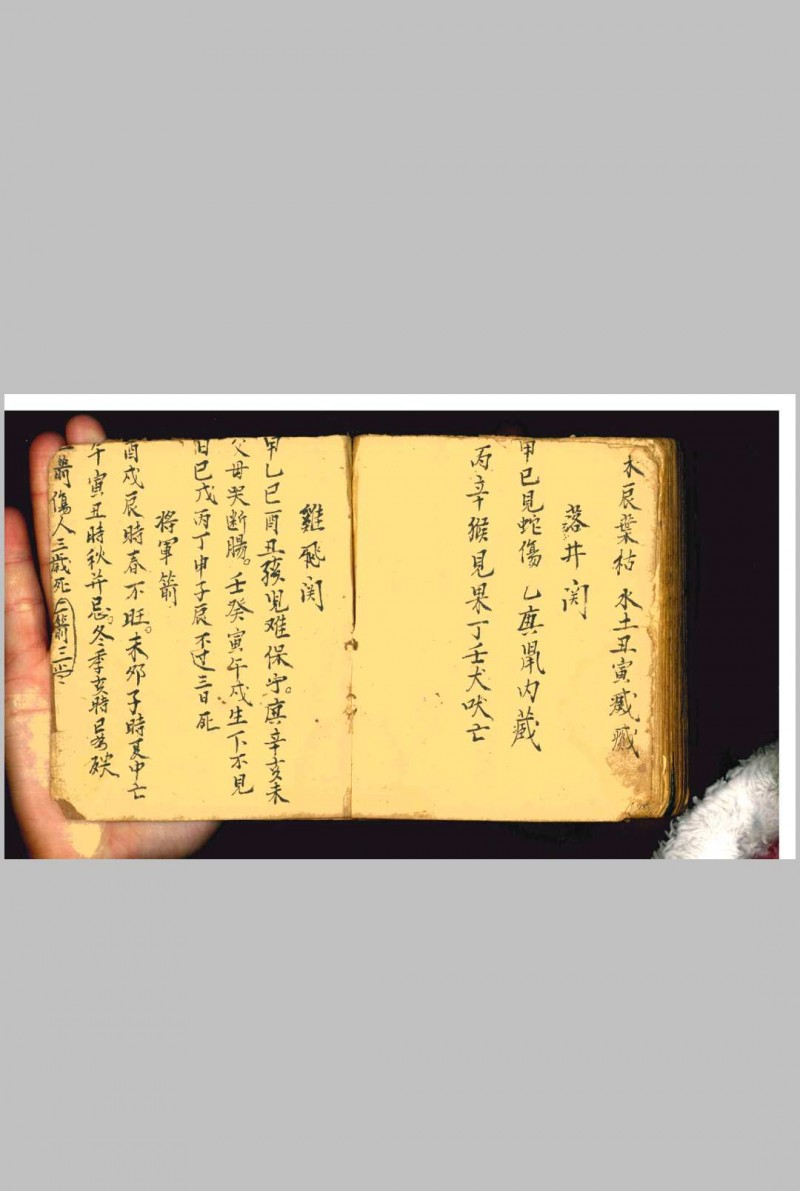 木辰葉枯 水土丑寅
落井関
甲巳見蛇傷 乙庚鼠内藏
丙辛猴見果丁壬犬吠亡
雞飛関
甲乙巳酉丑孩児难保守。庚辛亥未
父母哭断腸。壬癸寅午戌生下不見
日巳戊丙丁申子辰不过三日死
将軍箭
酉戌辰時春不旺。未卯子時夏中亡
午寅丑時秋并忌。冬季亥時
箭傷人三歲死二箭三